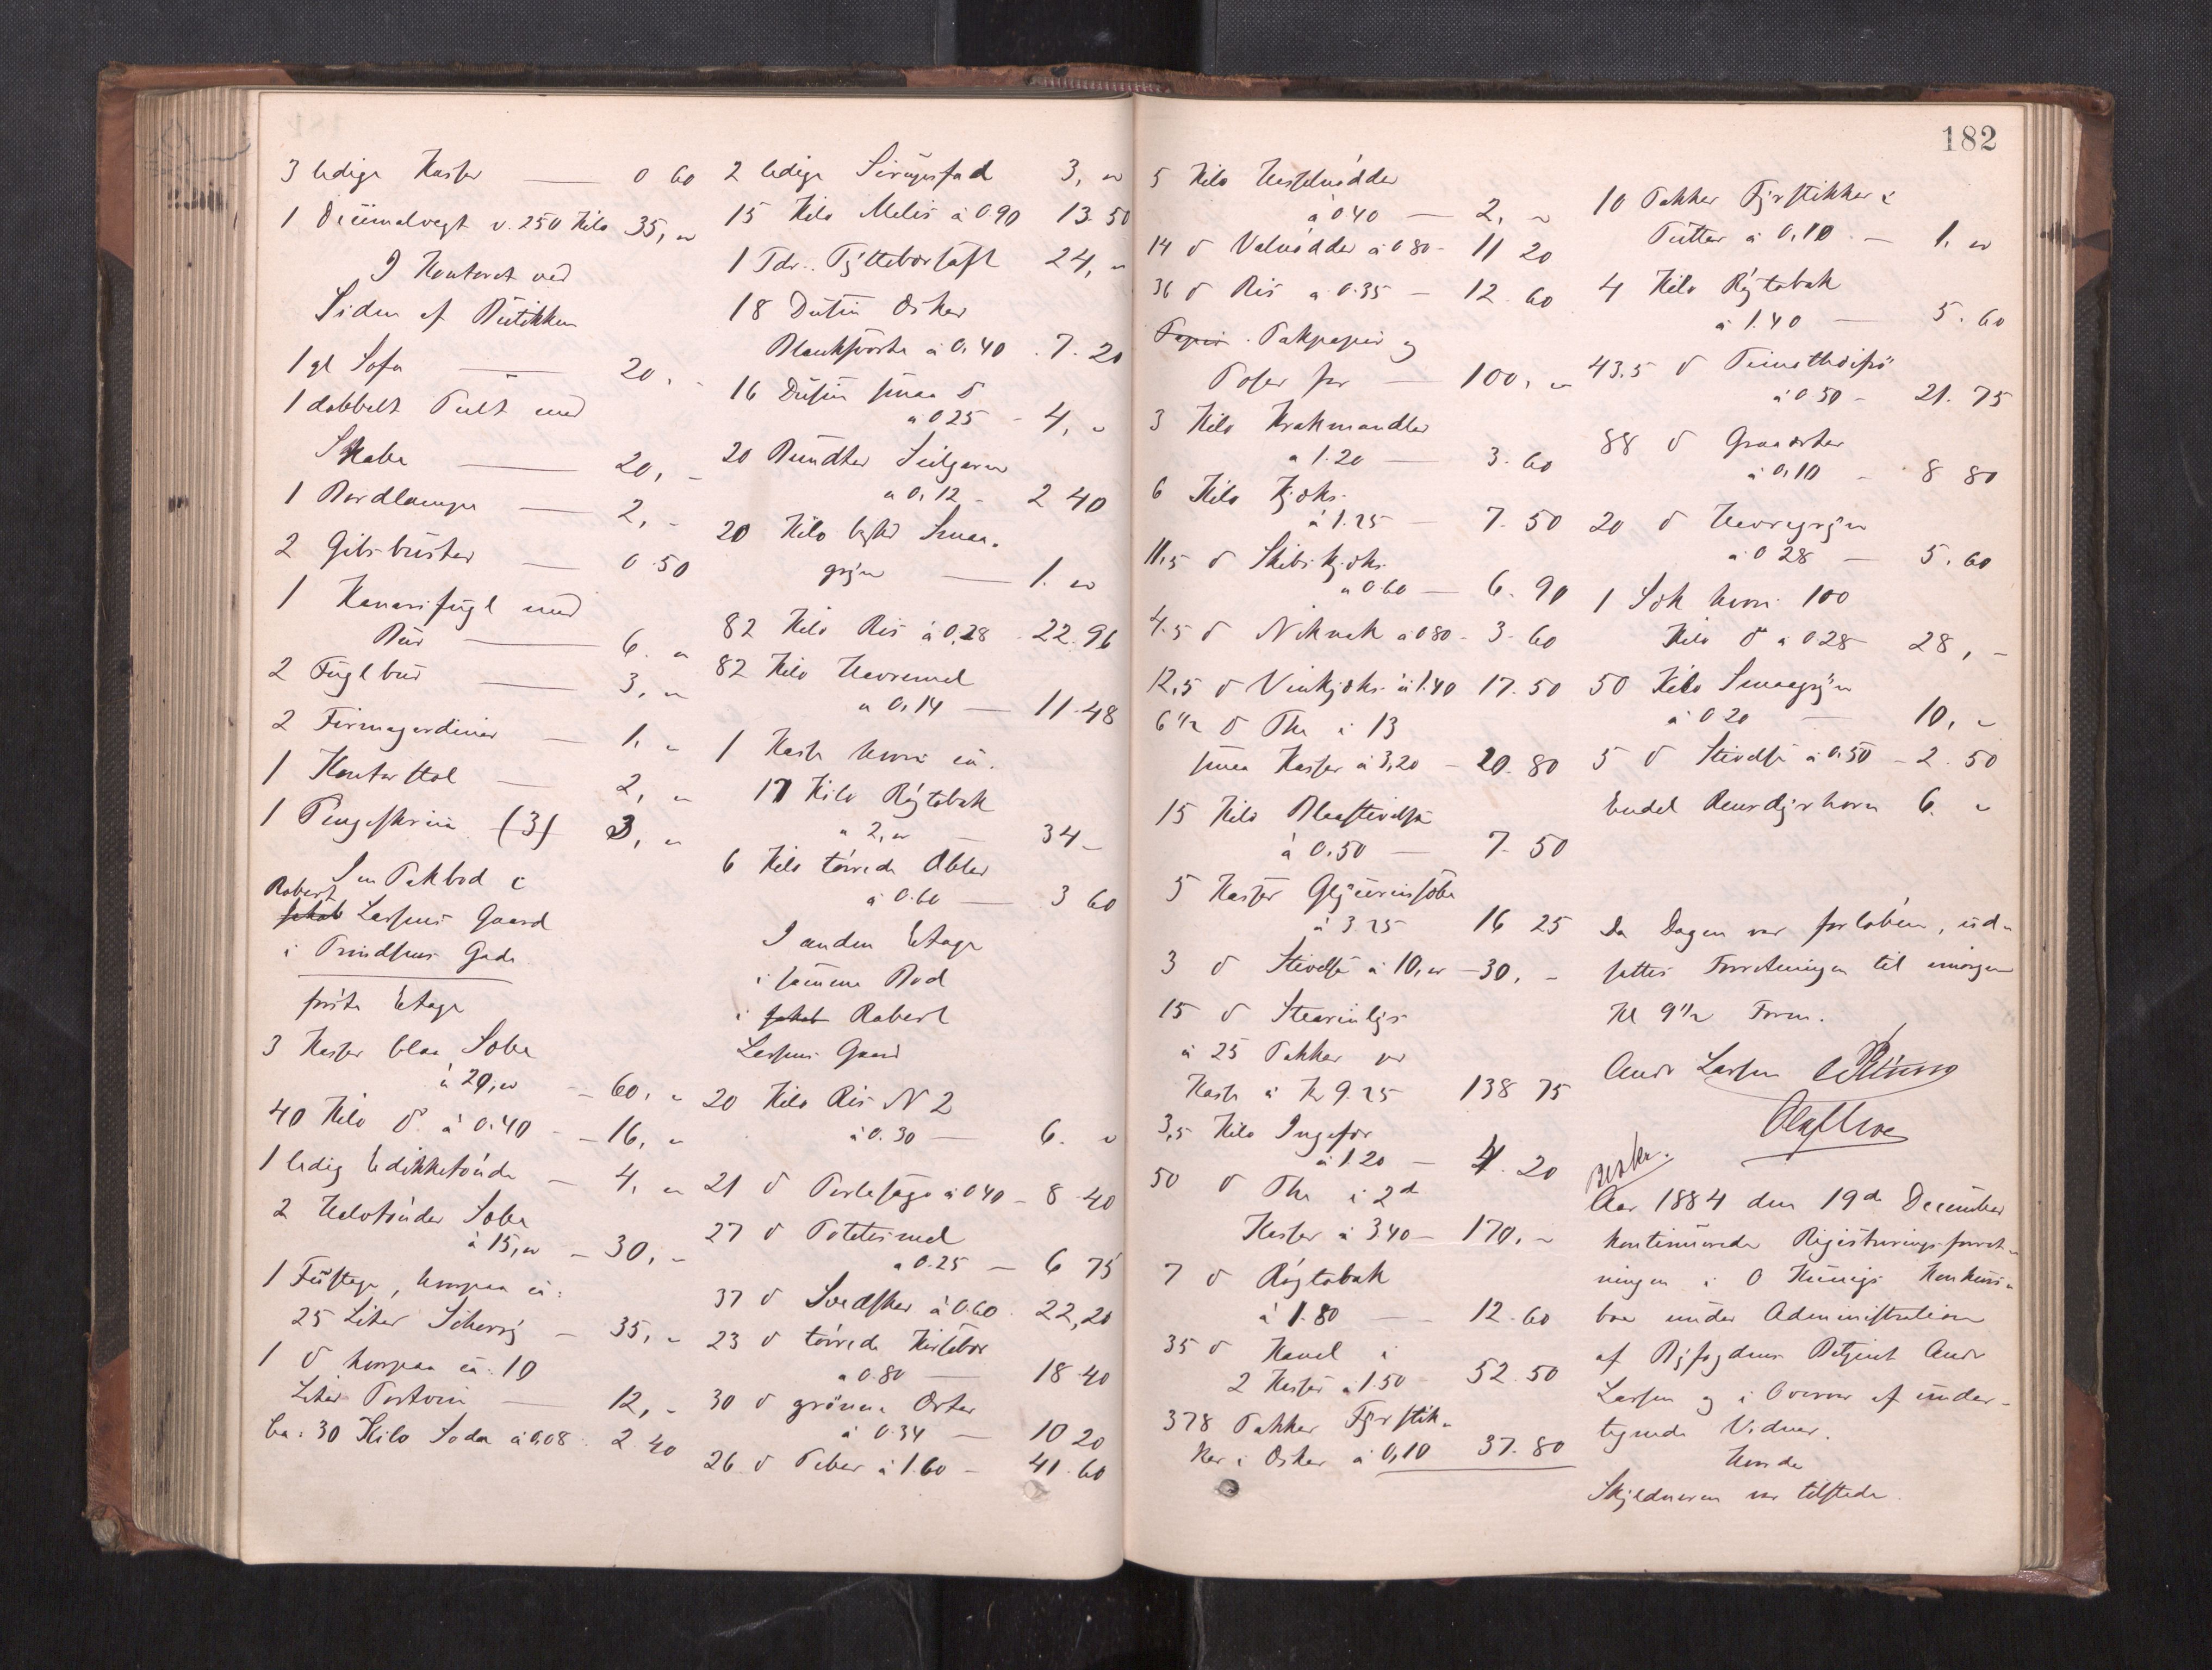 3 ledige Kasser — 0 60
1 Decimalvegt v. 250 Kilo 35, "
I Kontoret ved
Siden af Butikken
1 gl Sofa — 20, -
1 dobbelt Pult med
Skabe — 20, -
1 Bordlampe — 2, -
2 Gibsbuster — 0.50
1 Kanarifugl med
Bur — 6. "
2 Fuglbur — 3, "
2 Firmagardiner — 1, "
1 Kontorstol — 2, "
1 Pengeskrin (3) 3, "
I en Pakbod i
Robert
Jakob Larsens Gaard
i Gade
første Etage
3 Kasser blaa Sæbe
à 20, " - 60, "
40 Kilo do à 0.40 - 16, "
1 ledig Edikketønde — 4, "
2 Halvtønder Sæbe
à 15, " - 30, -
1 Fustage, hvorpaa ca:
25 Liter Scherry — 35, "
1 do hvorpaa ca: 10
Liter Portvin — 12, -
Ca: 30 Kilo Soda à 0,08 2 40
2 ledige Sirupsfad 3, "
15 Kilo Melis à 0.90 13.50
1 Tdr. Tyttebærsaft 24, "
18 Dusin Æsker
Blanksværte à 0,40 7.20
16 Dusin smaa do
à 0 25 - 4, "
20 Bundter Seilgarn
à 0,12 - 2 40
20 Kilo Smaa-
gryn — 1. "
82 Kilo Ris à 0,28 22.96
82 Kilo Havremel
à 0,14 — 11.48
1 Kasse hvori ca.
17 Kilo Røgtobak
à 2, " — 34 -
6 Kilo tørrede Æbler
à 0.60 — 3 60
I anden Etage
i samme Bod
i Jakob Robert
Larsens Gaard
20 Kilo Ris N 2
à 0.30 — 6. "
21 do Perlesago à 0 40 - 8.40
27 do Potetesmel
à 0.25 — 6 75
37 do Svedsker à 0.60 22,20
23 do tørrede Kirsebær
à 0.80 — 18.40
30 do grønne Ærter
à 0.34 — 10 20
26 do Peber à 1.60 - 41.60
182
5 Kilo Hasselnødder
à 0 40 — 2, "
14 do Valnødder à 0 80 - 11 20
36 do Ris à 0.35 — 12.60
Papir. Pakpapir og
Poser for — 100, "
3 Kilo Krakmandler
à 1.20 — 3.60
6 Kilo Kjæks
à 1.25 — 7.50
11,5 do Skibskjæks
à 0 60 — 6.90
4.5 do Niknak à 0 80 - 3.60
12,5 do Vinkjæks à 1.40 17.50
6 1/2 do The i 13
smaa Kasser à 3,20 - 20.80
15 Kilo Blaastivelse
à 0.50 — 7.50
5 Kasser Glycerinsæbe
à 3 25 16 25
3 do Stivelse à 10, " - 30, -
15 do Stearinlys
à 25 Pakker pr
Kasse à Kr 9.25 138 75
3,5 Kilo Ingefær
à 1.20 — 4.20
50 do The i 2 do
Kasser à 3 40 - 170. "
7 do Røgtobak
à 1.80 — 12.60
35 do Kanel i
2 Kasser à 1.50 52.50
378 Pakker Fyrstik-
ker i Æsker à 0,10 37.80
10 Pakker Fyrstikker i
Putter à 0,10 — 1. "
4 Kilo Røgtobak
à 1.40 — 5.60
43.5 do Timotheifrø
à 0 50 - 21.75
88 do Graaærter
à 0,10 - 8 80
20 do Havregryn
à 0 28 — 5.60
1 Sæk hvori 100
Kilo do à 0 28 28, -
50 Kilo Smaagryn
à 0 20 — 10, "
5 do Stivelse à 0.50 - 2.50
Endel Rensdyrhorn 6. "
Da Dagen var forløben, ud-
sattes Forretningen til imorgen
Kl 9 1/2 Form.
Andr Larsen
Aar 1884 den 19de December
kontinueredes Registreringsforret-
ningen i O Konkurs-
bo under Administration
af Byfogdens Betjent Andr
Larsen og i Overvær af under-
tegnede Vidner.
Skyldneren var tilstede.